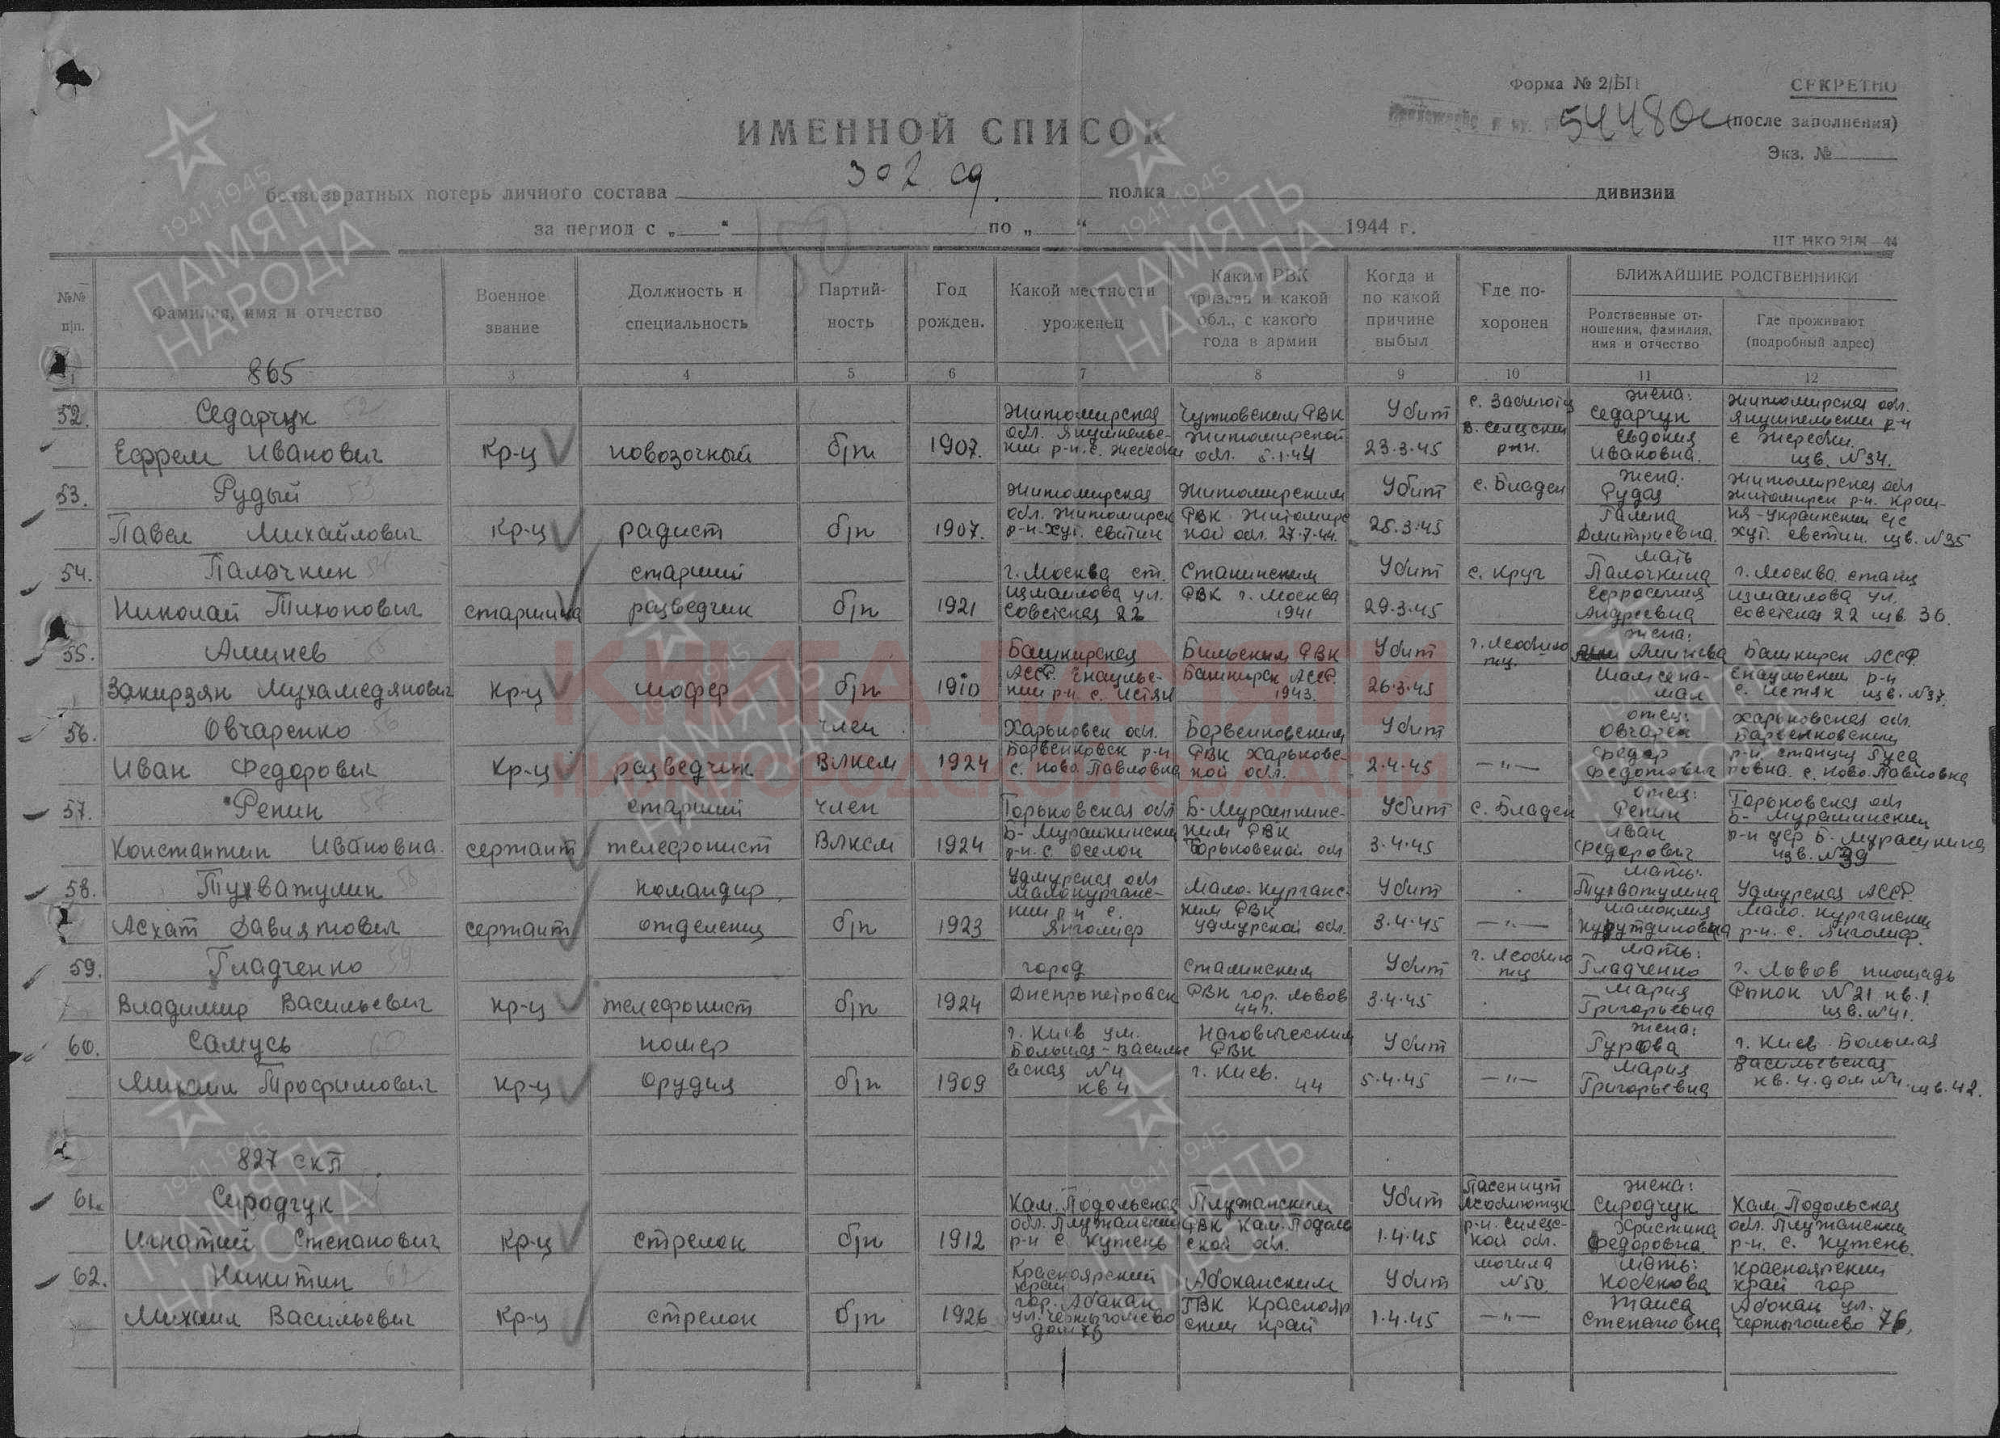 Форма № 2/БП
СЕКРЕТНО
54480с (после заполнения)
Экз. №
ИМЕННОЙ СПИСОК
безвозвратных потерь личного состава 302 сд. полка дивизии
за период с „ “ по „ “ 1944 г.
№№ п/п. Фамилия, имя и отчество Военное звание Должность и специальность Партийность Год рожден. Какой местности уроженец Каким РВК призван и какой обл., с какого года в армии Когда и по какой причине выбыл Где похоронен БЛИЖАЙШИЕ РОДСТВЕННИКИ
Родственные отношения, фамилия, имя и отчество Где проживают (подробный адрес)
865
3 4 5 6 7 8 9 10 11 12
52. Седарчук Житомирская Чутновским РВК Убит жена: Седарчук Житомирская обл.
Ефрем Иванович Кр-ц повозочный б/п 1907. Житомирской обл. 5.1.44 23.3.45 Евдокия Ивановна. изв. №34.
53. Рудый Житомирская Житомирским Убит с. Бладен жена: Рудая Житомирская обл
Павел Михайлович Кр-ц радист б/п 1907 обл. Житомирск р-н. хут. светин РВК Житомирской обл. 27.7.44. 25.3.45 Галина Дмитриевна. хут. светин. изв. №35
54. Палочкин старший г. Москва ст. Сталинским Убит с. Круг мать Палочкина г. Москва станц
Николай Тихонович старшина разведчик б/п 1921 измайлова ул. Советская 22 РВК г. Москва 1941 29.3.45 Ефросиния Андреевна измайлова ул. советская 22 изв. 36.
55. Аминев Башкирская Бильским РВК Убит жена: Аминева Башкирск АССР.
Закирзян Мухамедянович кр-ц шофер б/п 1910 АССР. р-н с. Истяк Башкирск АССР. 1943. 26.3.45 р-н с. Истяк изв. №37.
56. Овчаренко член Харьковск обл. Борвенковским Убит отец: Овчарен Харьковская обл.
Иван Федорович Кр-ц разведчик ВЛКСМ 1924 Борвенковск р-н с. Ново Павловка РВК Харьковской обл. 2.4.45 —"— Федор Федотович р-н станция с. Ново. Павловка
57. Репин старший член Горьковская обл Б-Мурашкинс- Убит с. Бладен отец: Репин Горьковская обл
Константин Ивановна. сержант телефонист ВЛКСМ 1924 Б-Мурашкинский р-н. с. Оселок ким РВК Горьковской обл 3.4.45 Иван Федорович Б-Мурашкинский р-н дер Б-Мурашкина изв. №39
58. Тухватулин командир Удмурская обл Мало. Курганс- Убит мать: Тухватулина Удмурская АССР.
Асхат Завиятович сержант отделения б/п 1923 р-н с. Янголиф ким РВК Удмурской обл. 3.4.45 —"— Мало. Курганский р-н. с. Янголиф.
59. Гладченко город Сталинским Убит мать: Гладченко г. Львов площадь
Владимир Васильевич кр-ц телефонист б/п 1924 Днепропетровск РВК гор. Львов 44г. 3.4.45 Мария Григорьевна Рынок №21 кв. 1. изв. №41.
60. Самусь номер г. Киев ул. Убит жена: Гурова г. Киев Большая
Михаил Трофимович кр-ц орудия б/п 1909 Большая-Васильевская №4 кв 4 РВК г. Киев. 44 5.4.45 —"— Мария Григорьевна Васильевская кв. 4. дом №4. изв. 42.
827 скп
61. Сиродчук Кам. Подольская Плужанским Убит жена: Сиродчук Кам. Подольская
Игнатий Степанович кр-ц стрелок б/п 1912 обл. Плужанский р-н с. Кутень РВК Кам. Подольской обл. 1.4.45 Христина Федоровна обл. Плужанский р-н. с. Кутень.
62. Никитин Красноярский край Абоканским Убит могила №50. мать: Красноярский край гор
Михаил Васильевич Кр-ц стрелок б/п 1926 гор. Абакан дом 76 ГВК Красноярский край 1.4.45 —"— Таиса Степановна Абокан ул. 76.
1941-1945 ПАМЯТЬ НАРОДА
КНИГА ПАМЯТИ
НИЖЕГОРОДСКОЙ ОБЛАСТИ